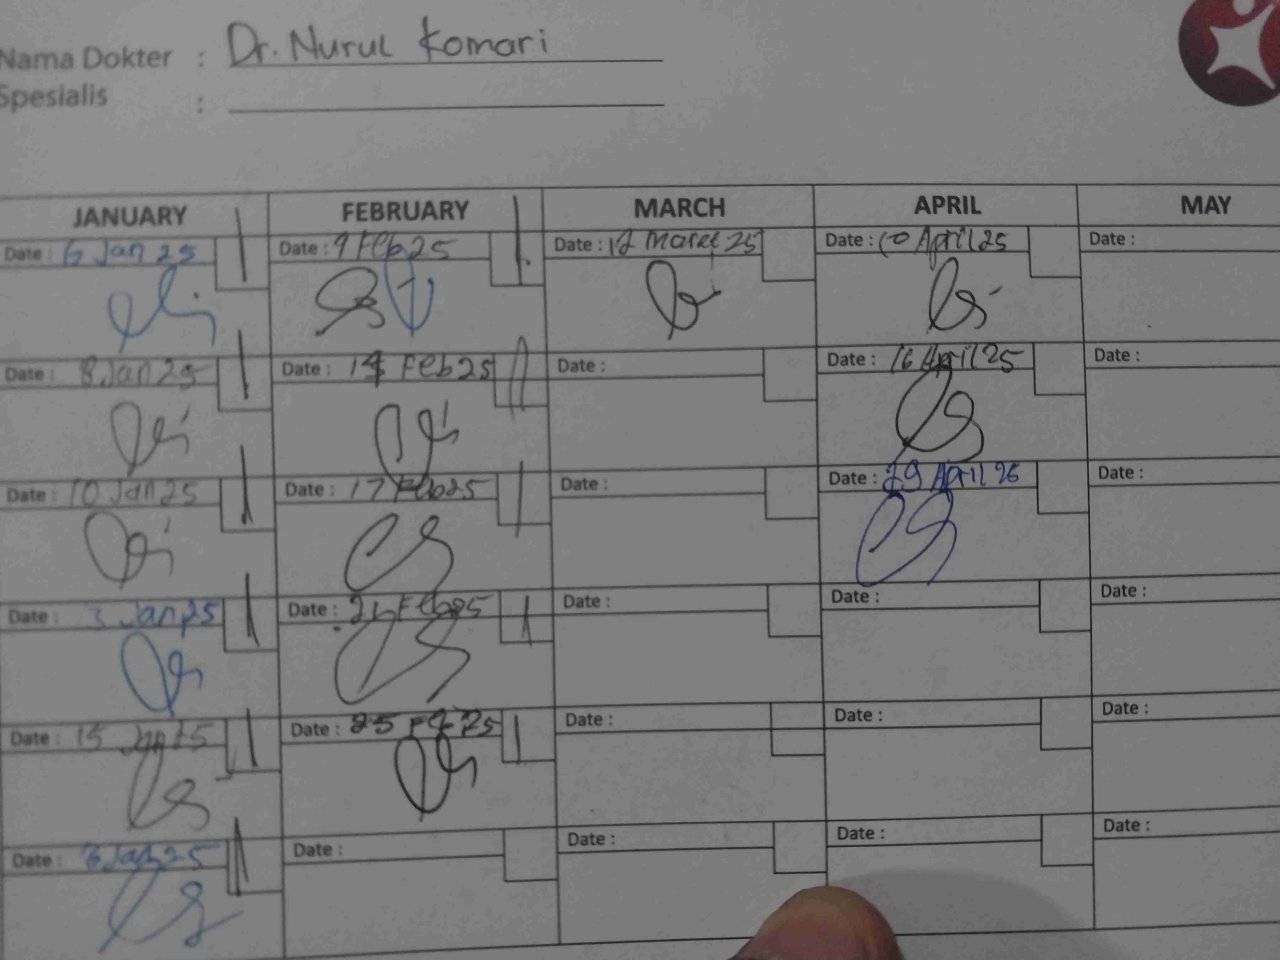 Nama Dokter : Dr. Nurul Komari
Spesialis :
JANUARY FEBRUARY MARCH APRIL MAY
Date : 6 Jan 25 Date : 9 Feb 25 Date : 12 Maret 25 Date : 10 April 25 Date :
Date : 8 Jan 25 Date : 14 Feb 25 Date : Date : 16 April 25 Date :
Date : 10 Jan 25 Date : 17 Feb 25 Date : Date : 29 April 25 Date :
Date : Jan 25 Date : Feb 25 Date : Date : Date :
Date : 15 Jan 25 Date : 25 Date : Date : Date :
Date : Jan 25 Date : Date : Date : Date :